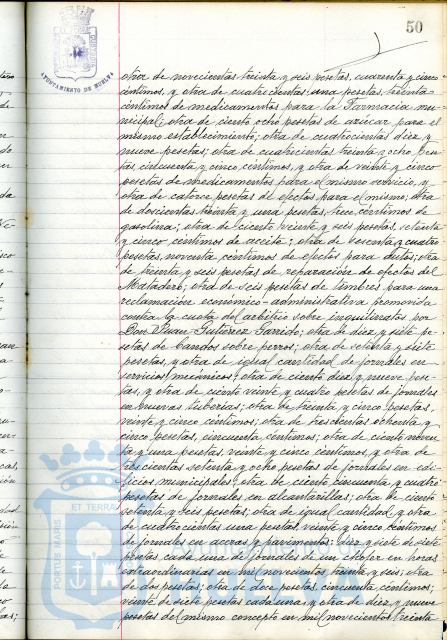 50
AYUNTAMIENTO DE HUELVA
otra de novecientas treinta y seis pesetas, cuarenta y cinco
céntimos, y otra de cuatrocientas una pesetas treinta
céntimos de medicamentos para la Farmacia mu-
nicipal; otra de ciento ocho pesetas de azúcar para el
mismo establecimiento; otra de cuatrocientas diez y
nueve pesetas; otra de cuatrocientas treinta y ocho pese-
tas, cincuenta y cinco céntimos, y otra de veinte y cinco
pesetas de medicamentos para el mismo servicio, y
otra de catorce pesetas de efectos para el mismo; otra
de doscientas treinta y una pesetas, trece céntimos de
gasolina; otra de ciento veinte y seis pesetas, setenta
y cinco céntimos de aceite; otra de sesenta y cuatro
pesetas, noventa céntimos de efectos para autos; otra
de treinta y seis pesetas de reparación de efectos del
Matadero; otra de seis pesetas de timbres para una
reclamación económico-administrativa promovida
contra la cuota del arbitrio sobre inquilinatos por
Don Juan Gutiérrez Garrido; otra de diez y siete pe-
setas de bandos sobre perros; otra de setenta y siete
pesetas, y otra de igual cantidad de jornales en
servicios mecánicos; otra de ciento diez y nueve pese-
tas, y otra de ciento veinte y cuatro pesetas de jornales
en nuevas tuberías; otra de treinta y cinco pesetas,
veinte y cinco céntimos; otra de trescientas ochenta y
cinco pesetas, cincuenta céntimos; otra de ciento noven-
ta y una pesetas, veinte y cinco céntimos, y otra de
trescientas setenta y ocho pesetas de jornales en edi-
ficios municipales; otra de ciento cincuenta y cuatro
pesetas de jornales en alcantarillas; otra de ciento
setenta y seis pesetas; otra de igual cantidad, y otra
de cuatrocientas una pesetas veinte y cinco céntimos
de jornales en aceras y pavimentos; diez y siete de siete
pesetas cada una de jornales de un chófer en horas
extraordinarias en mil novecientos treinta y seis; otra
de dos pesetas; otra de doce pesetas, cincuenta céntimos;
veinte de siete pesetas cada una, y otra de diez y nueve
pesetas del mismo concepto en mil novecientos treinta
PORTUS MARIS ET TERRAE
HUELVA